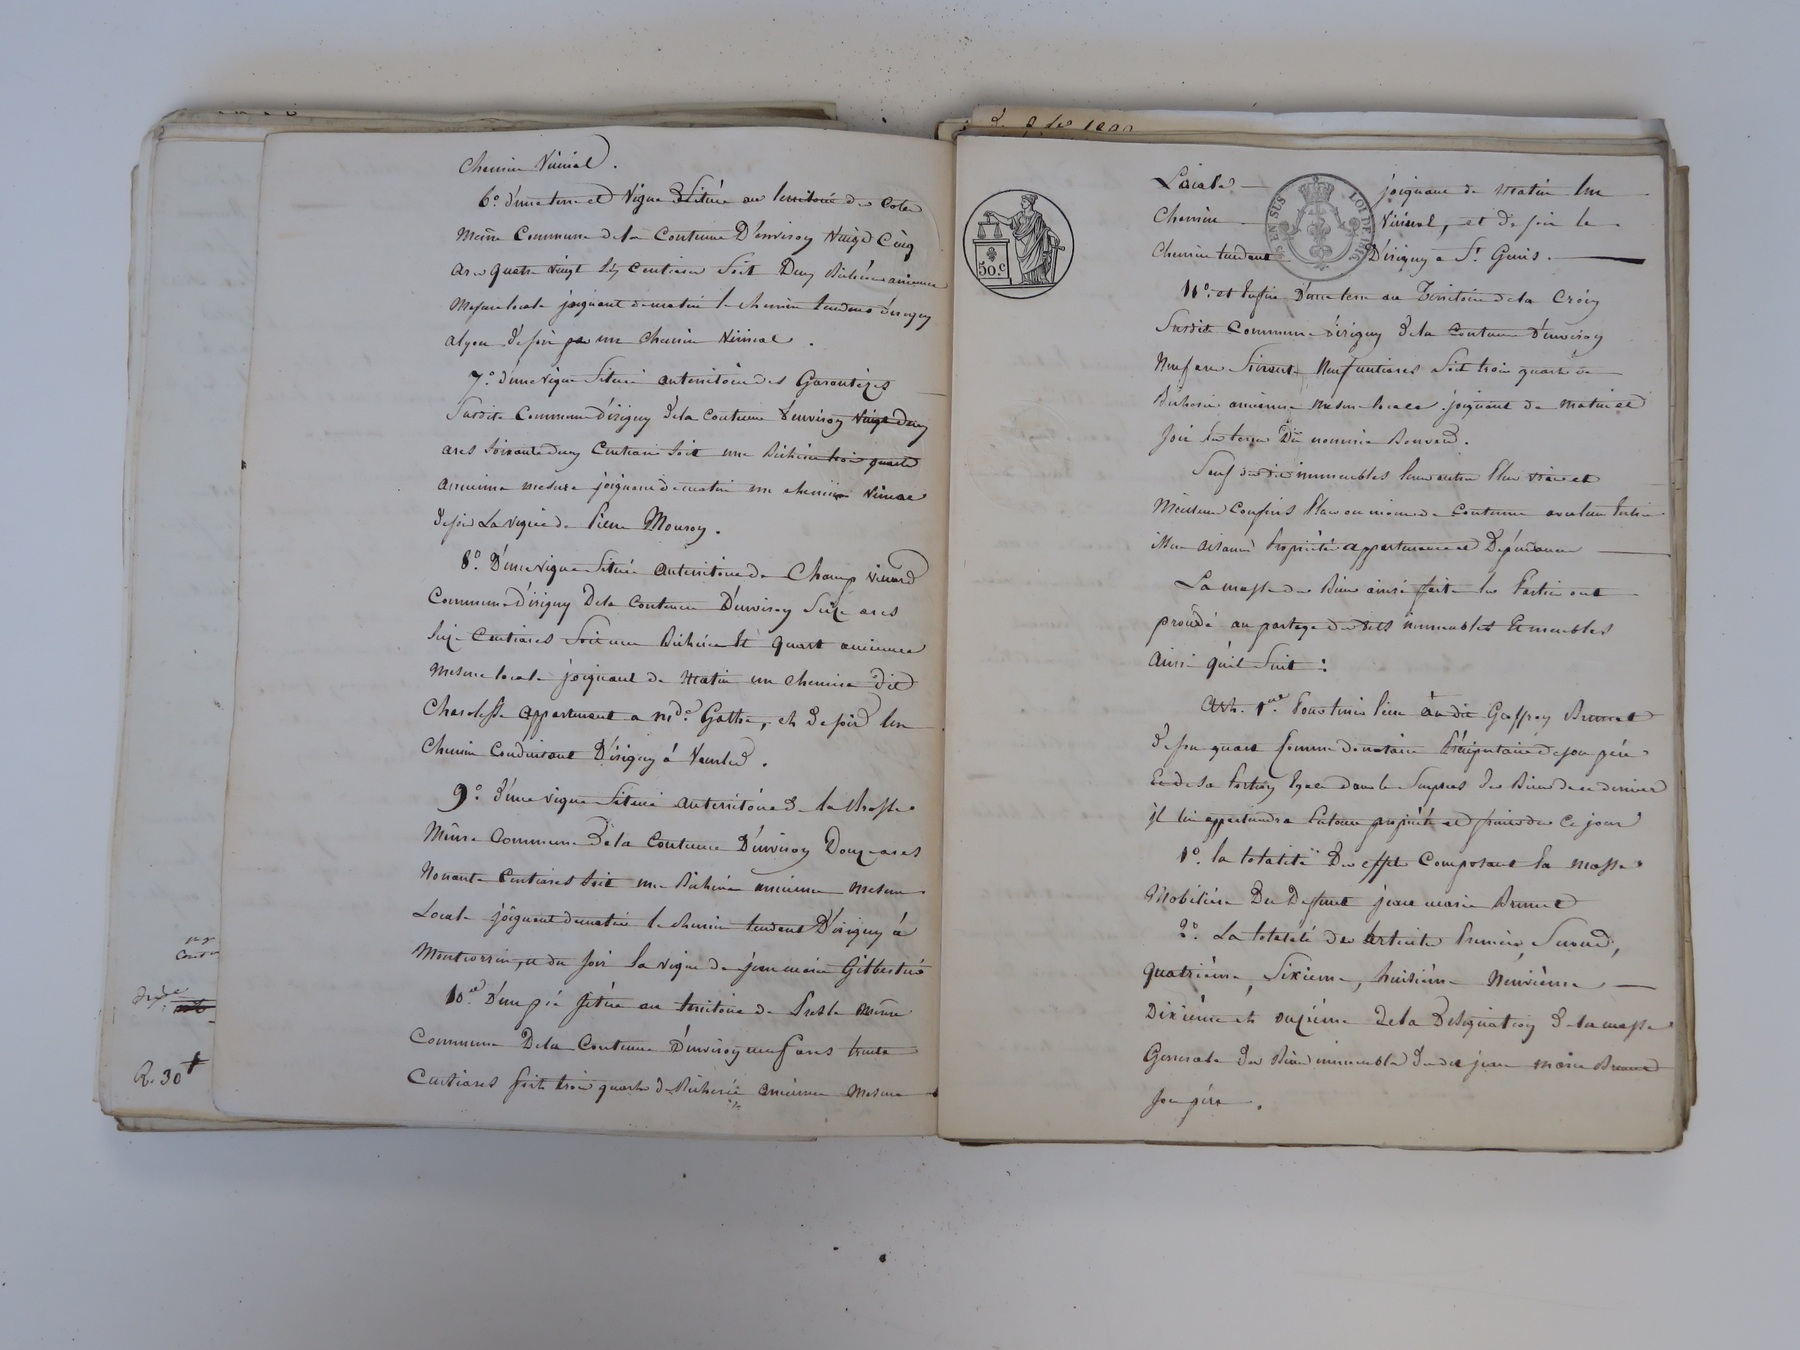 chemin Vicinal.
6.° d'une terre et Vigne Située au territoire des Cotes
même Commune de la Contenue D'environ Vingt Cinq
ares quatre vingt centiares Soit Deux Bicherées ancienne
Mesure locale joignant de matin le chemin tendant d'irigny
a lyon de soir par un chemin Vicinal.
7.° d'une vigne Située au territoire des Garantizes
Susdite Commune d'irigny de la contenue d'environ Vingt deux
ares Soixante deux Centiares Soit une Bicherée trois quarts
ancienne mesure joignant de matin un chemin Vicinal
de soir La vigne de Pierre Mouroy.
8.° D'une vigne Située au territoire de Champ Vinard
Commune d'irigny De la Contenue D'environ Seize ares
Seize Centiares Soit une Bicherée et quart ancienne
Mesure locale joignant de Matin un chemin dit
appartenant a md.e Gothe, et de soir un
Chemin Conduisant D'irigny à
9.° d'une vigne Située au territoire de la
Même Commune de la Contenue D'environ Douze ares
Nonante Centiares Soit une Bicherée ancienne Mesure
Locale joignant de matin le chemin tendant D'irigny à
Montcorin, et du soir la vigne de jean marie Gilbertier
10.° D'un pré Situé au territoire de Presle même
Commune De la Contenue D'environ neuf ares trente
Centiares soit trois quarts de Bicherée ancienne Mesure
R. 30
50.c
EN SUS
LOI DE 1816
Locale joignant de Matin un
Chemin Vicinal, et de soir le
Chemin tendant D'irigny a S.t Genis.
11.° et Enfin D'une terre au Territoire de la Croix
Susdite Commune d'irigny de la Contenue D'environ
Neuf ares Soixante Neuf centiares Soit trois quarts de
Bicherée ancienne Mesure locale joignant de Matin et
Soir les terres Du nommé Bouvard.
Sauf des dits immeubles leurs autres Plus vrais et
Meilleurs Confins Plus ou moins de Contenue avec leurs Entrées
issues aisances Propriétés appartenances et Dépendances
La masse des Biens ainsi faite les Parties ont
procédé au partage des dits immeubles Et meubles
Ainsi qu'il Suit :
Art. 1.er Pour tenir lieu au dit Geoffray Brunet
de son quart Comme donataire Préciputaire de son père
Et de sa Portion Egale dans le Surplus des Biens de ce dernier
il lui appartiendra En toute propriété et jouissance Ce jour
1.° la totalité Des effets Composant la masse
Mobiliére Du Defunt jean marie Brunet
2.° La totalité des articles Premier, Second,
quatriéme, Sixieme, huitiéme Neuviéme
Dixiéme et onziéme de la Designation de la masse
Generale des Biens immeubles du dit jean marie Brunet
Son pére.